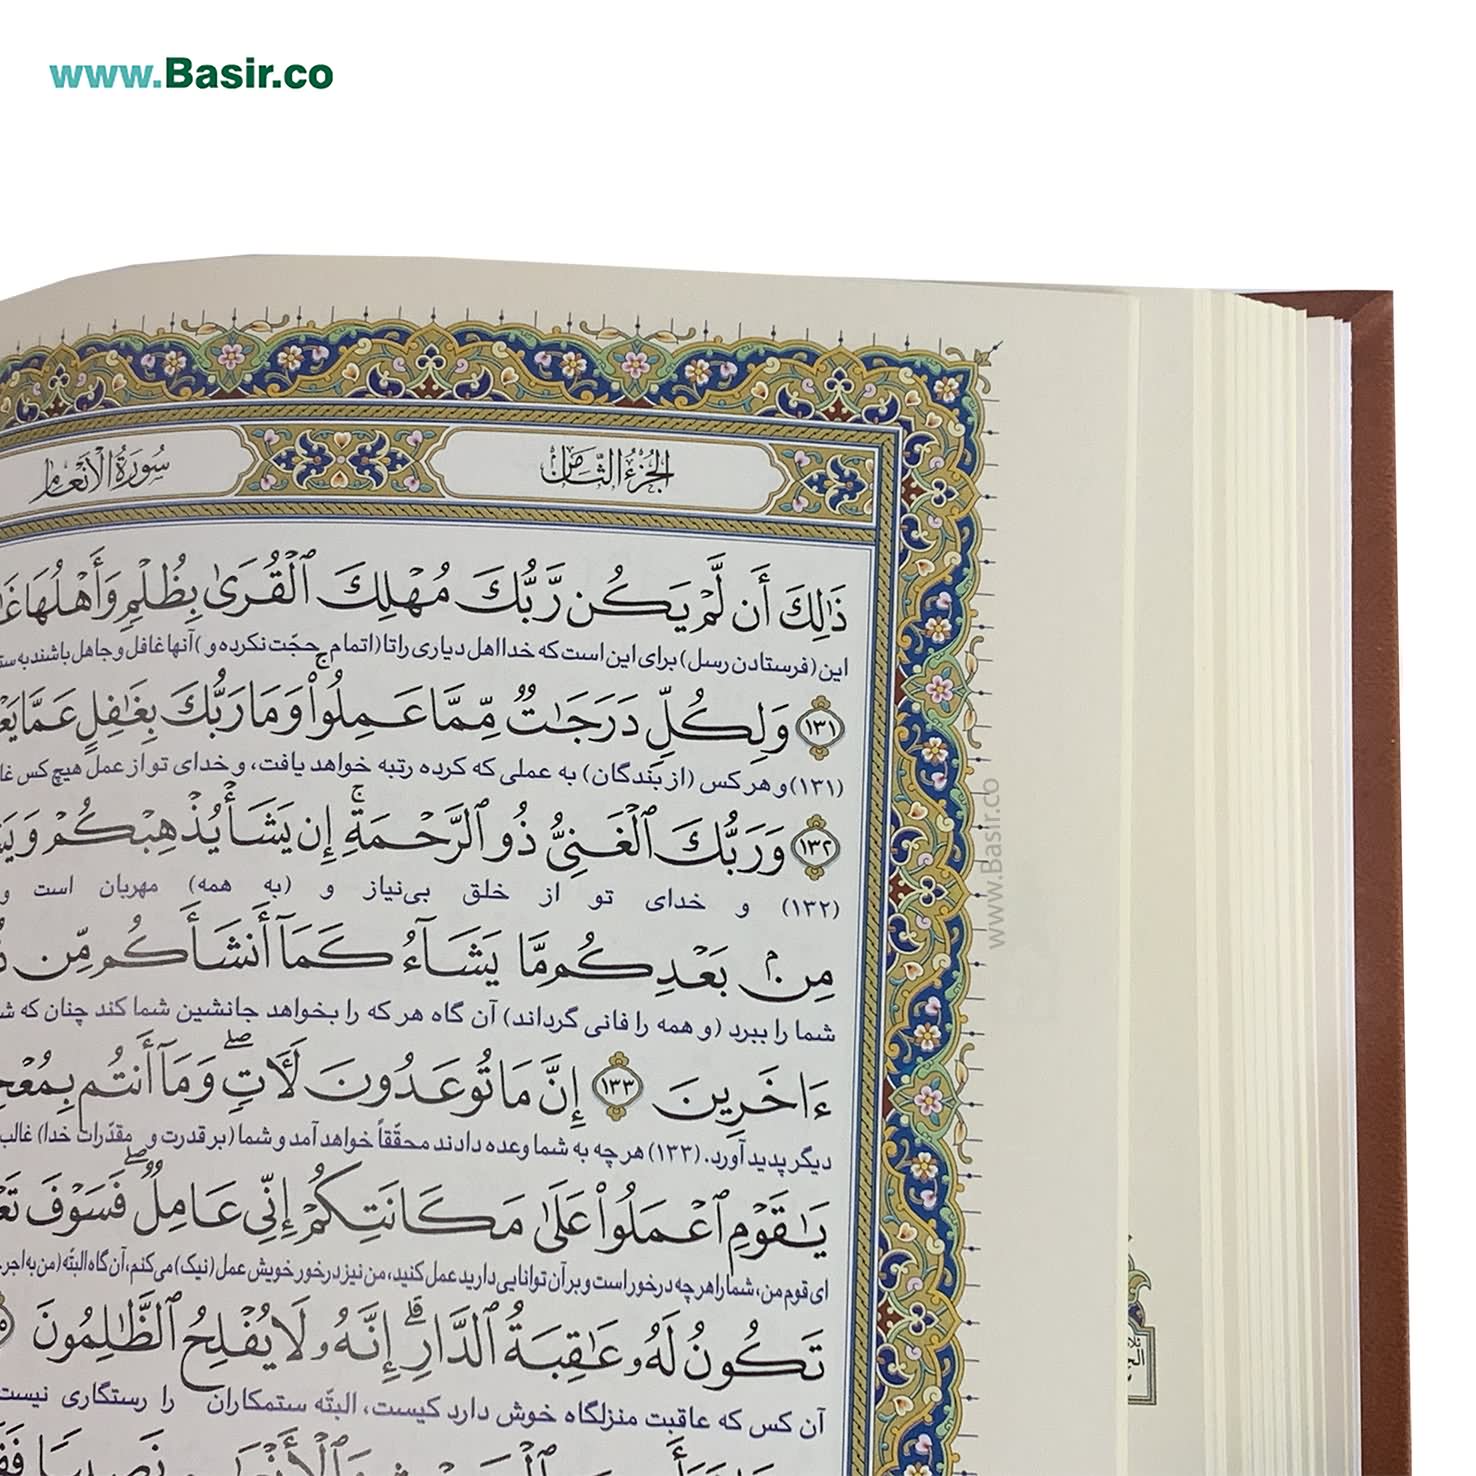 www.Basir.co
الجزء الثامن
سورة الأنعام
ذَٰلِكَ أَن لَّمْ يَكُن رَّبُّكَ مُهْلِكَ ٱلْقُرَىٰ بِظُلْمٍ وَأَهْلُهَا
این (فرستادن رسل) برای این است که خدا اهل دیاری را تا (اتمام حجّت نکرده و) آنها غافل و جاهل باشند به
﴿١٣١﴾ وَلِكُلٍّ دَرَجَـٰتٌ مِّمَّا عَمِلُوا۟ ۚ وَمَا رَبُّكَ بِغَـٰفِلٍ عَمَّا
(۱۳۱) و هر کس (از بندگان) به عملی که کرده رتبه خواهد یافت، و خدای تو از عمل هیچ کس
﴿١٣٢﴾ وَرَبُّكَ ٱلْغَنِىُّ ذُو ٱلرَّحْمَةِ ۚ إِن يَشَأْ يُذْهِبْكُمْ
(۱۳۲) و خدای تو از خلق بی‌نیاز و (به همه) مهربان است و
مِنۢ بَعْدِكُم مَّا يَشَآءُ كَمَآ أَنشَأَكُم مِّن
شما را ببرد (و همه را فانی گرداند) آن گاه هر که را بخواهد جانشین شما کند چنان که
ءَاخَرِينَ ﴿١٣٣﴾ إِنَّ مَا تُوعَدُونَ لَـَٔاتٍ ۖ وَمَآ أَنتُم
دیگر پدید آورد. (۱۳۳) هر چه به شما وعده دادند محقّقاً خواهد آمد و شما (بر قدرت و مقدّرات خدا)
يَـٰقَوْمِ ٱعْمَلُوا۟ عَلَىٰ مَكَانَتِكُمْ إِنِّى عَامِلٌ ۖ فَسَوْفَ
ای قوم من، شما را هر چه درخور است و بر آن توانایی دارید عمل کنید، من نیز درخور خویش عمل (نیک) می‌کنم، آن گاه البتّه (من به
تَكُونُ لَهُۥ عَـٰقِبَةُ ٱلدَّارِ ۗ إِنَّهُۥ لَا يُفْلِحُ ٱلظَّـٰلِمُونَ
آن کس که عاقبت منزلگاه خوش دارد کیست، البتّه ستمکاران را رستگاری نیست
www.Basir.co